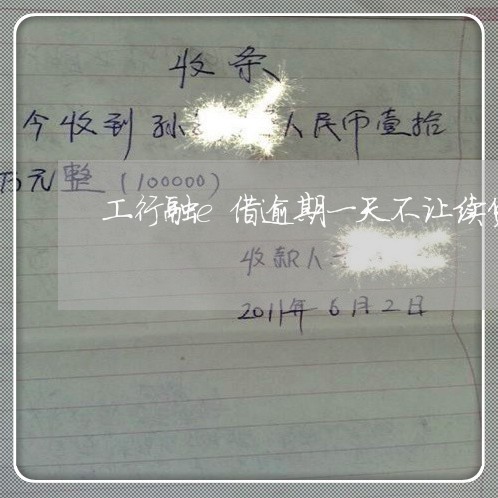 收条
今收到孙 人民币壹拾
万元整(100000)
工行融e借逾期一天不让续
收款人
2011年6月2日